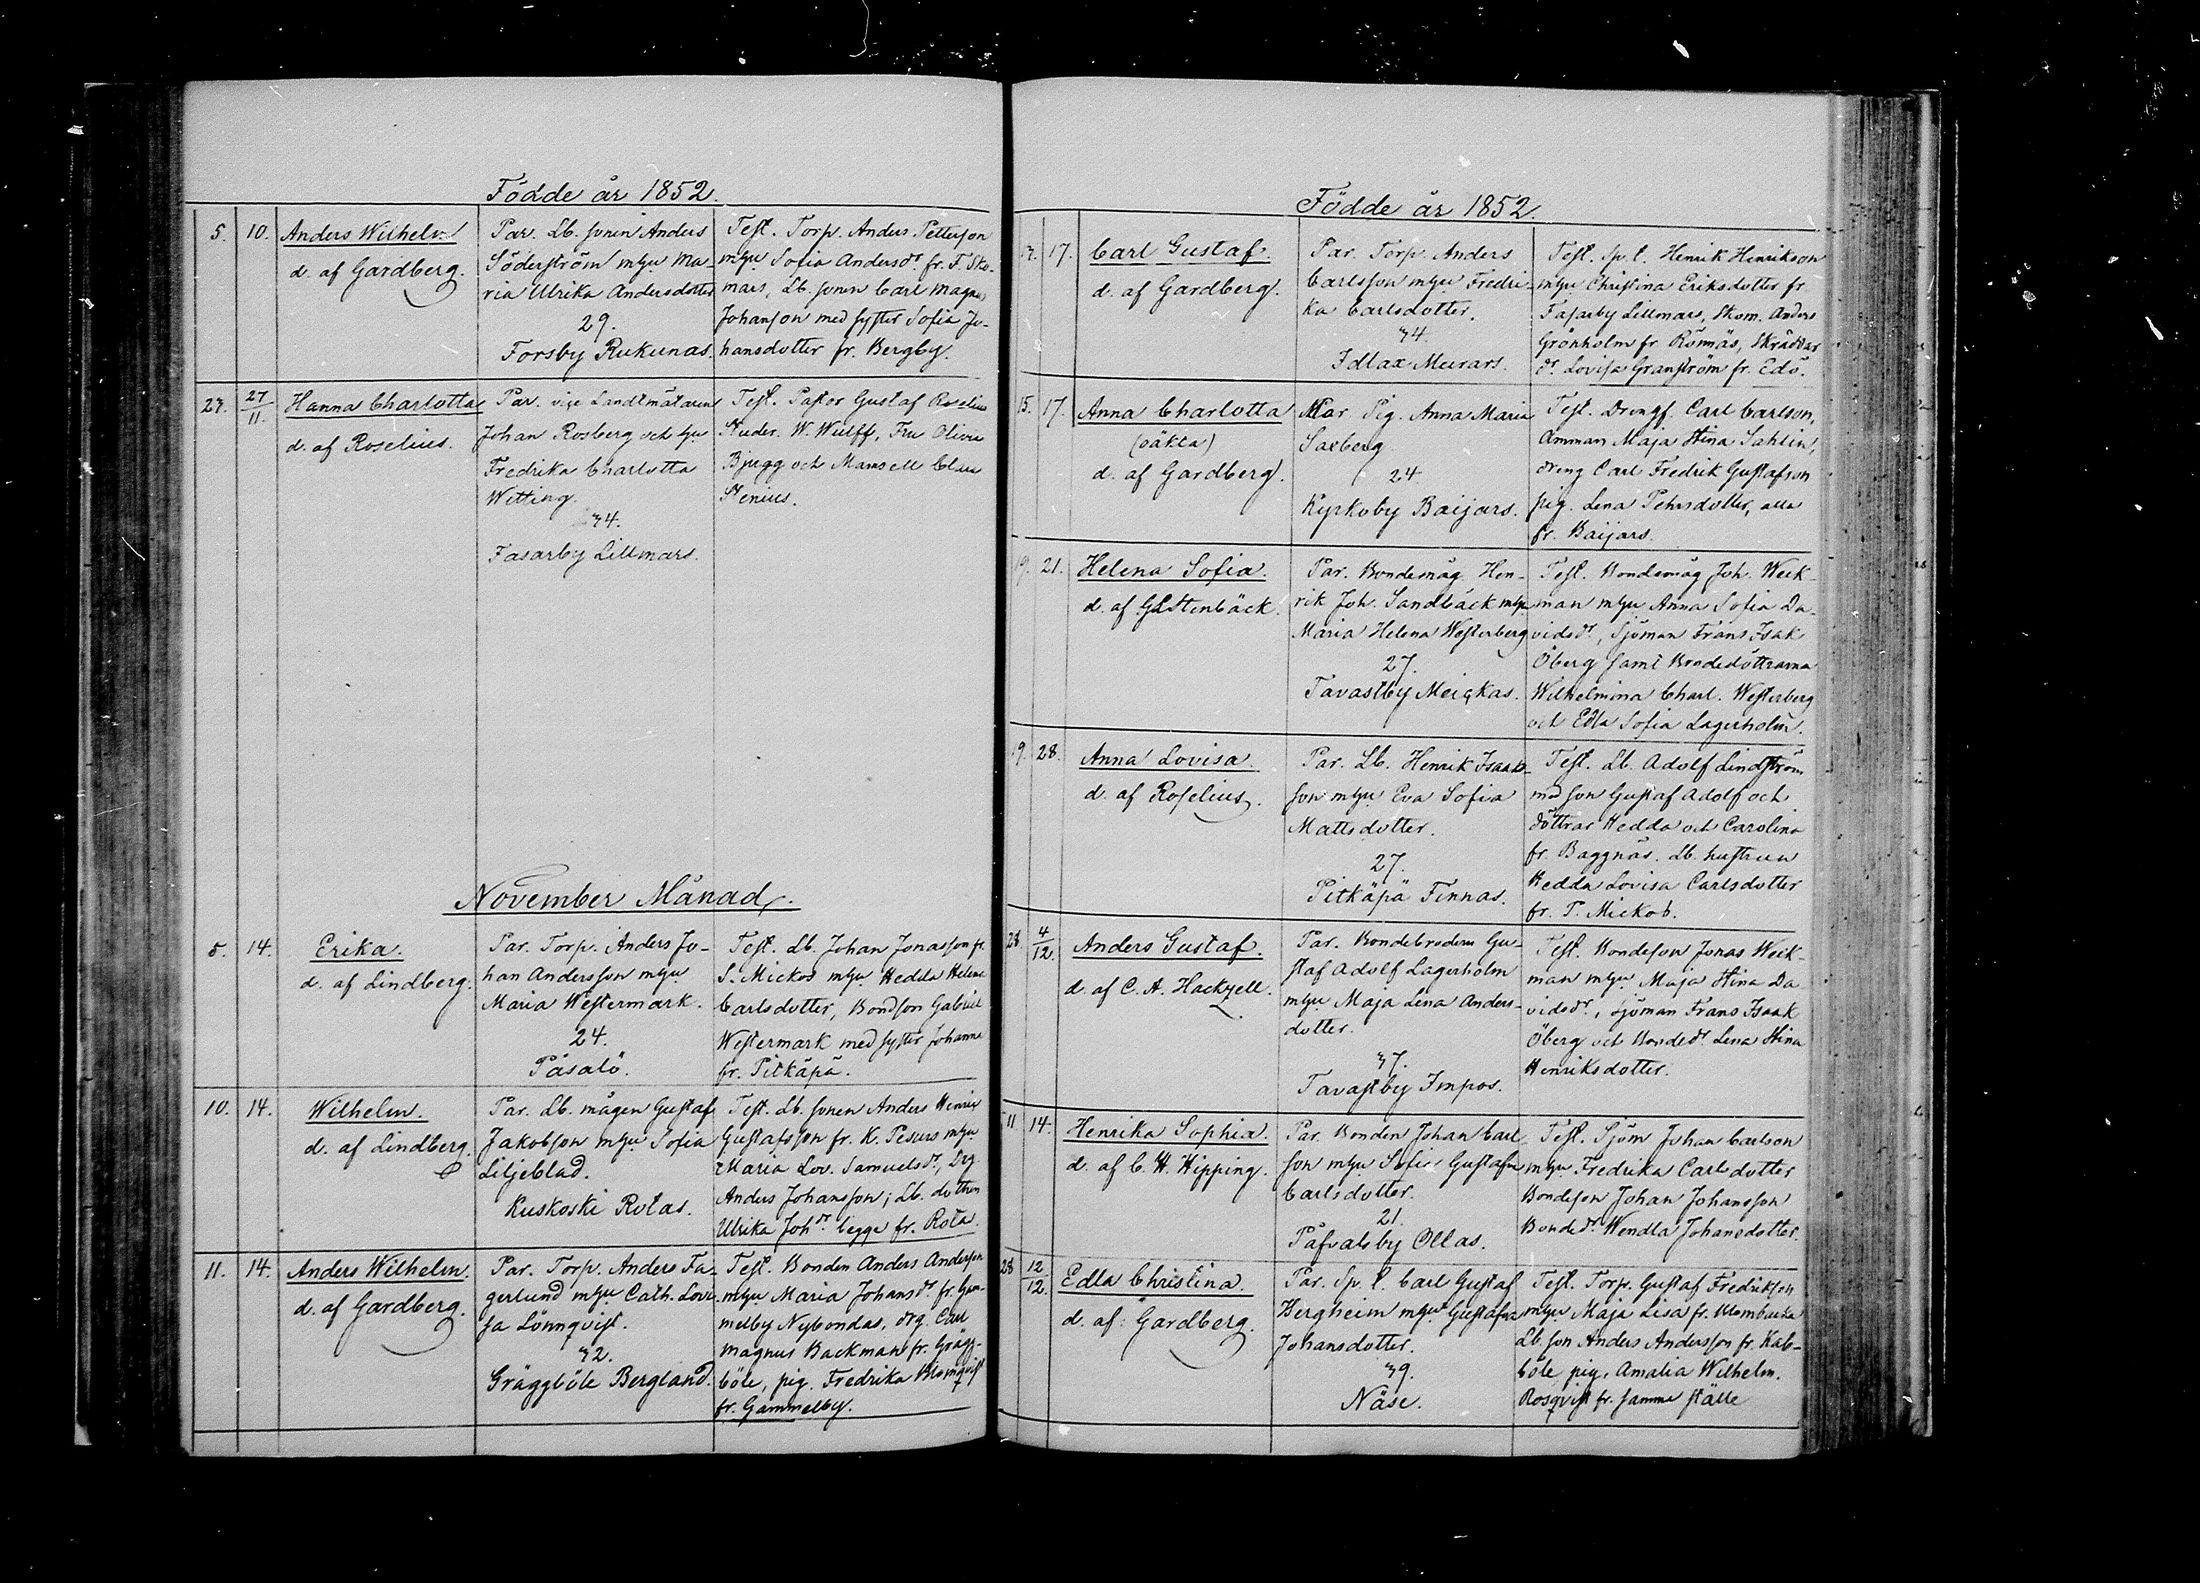 Födde år 1852.
5. 10. Anders Wilhelm
d. af Gardberg.
Par. Lb. sonen Anders
Söderström m hu Ma-
ria Ulrika Andersdotter
29.
Forsby Rukunas.
Test. Torp. Anders Petterson
m hu Sofia Andersdr fr. F. Sko-
mars, Lb. sonen Carl Magnus
Johanson med syster Sofia Jo-
hansdotter fr. Bergby.
27. 27/11. Hanna Charlotta
d. af Roselius.
Par. vice Landtmätaren
Johan Rosberg och hu
Fredrika Charlotta
Witting.
34.
Fasarby Lillmars.
Test. Pastor Gustaf Roselius
Studer. W. Wulff, Fru Olivia
Bjugg och Mamsell Clara
Stenius.
November Månad.
5. 14. Erika.
d. af Lindberg.
Par. Torp. Anders Jo-
han Andersson m hu
Maria Westermark.
24.
Påsalö.
Test. Lb. Johan Jonasson fr.
S. Mickos m hu Hedda Helena
Carlsdotter, Bondson Gabriel
Westermark med syster Johanna
fr. Pitkäpä.
10. 14. Wilhelm.
d. af Lindberg.
Par. Lb. mågen Gustaf
Jakobson m hu Sofia
Liljeblad.
Kuskoski Rotas.
Test. Lb. sonen Anders Henrik
Gustafsson fr. K. Pesurs m hu
Maria Lov. Samuelsdr, Drg.
Anders Johansson; Lb. dottren
Ulrika Johdr begge fr. Rota.
11. 14. Anders Wilhelm.
d. af Gardberg.
Par. Torp. Anders Fa-
gerlund m hu Cath. Lovi-
sa Lönnqvist.
32.
Gräggböle Bergland.
Test. Bonden Anders Anderson
m hu Maria Johansdr fr. Gam-
melby Nybondas, drg. Carl
Magnus Backman fr. Grägg-
böle, pig. Fredrika Blomqvist
fr. Gammelby.
Födde år 1852.
13. 17. Carl Gustaf.
d. af Gardberg.
Par. Torp. Anders
Carlsson m hu Fredri-
ka Carlsdotter.
34.
Idlax Murars.
Test. Sp. l. Henrik Henrikson
m hu Christina Eriksdotter fr
Fasarby Lillmars, Skom. Anders
Grönholm fr. Rönnäs, Skräddar
dr. Lovisa Granström fr. Edö.
15. 17. Anna Charlotta
(oäkta)
d. af Gardberg.
Mar Pig. Anna Maria
Saxberg
24.
Kyrkoby Baijars.
Test. Drengf. Carl Carlson,
Amman Maja Stina Sahlin,
dreng Carl Fredrik Gustafson
pig. Lena Pehrsdotter, alla
fr. Baijars.
19. 21. Helena Sofia.
d. af G L Stenbäck.
Par. Bondemåg Hen-
rik Joh. Sandbäck m hu
Maria Helena Westerberg
27.
Tavastby Meickas.
Test. Bondemåg Joh. Weck-
man m hu Anna Sofia Da-
vidsdr, Sjöman Frans Isak
Öberg samt Bondedöttrarna
Wilhelmina Charl. Westerberg
och Edla Sofia Lagerholm.
19. 28. Anna Lovisa.
d. af Roselius.
Par. Lb. Henrik Isaak-
son m hu Eva Sofia
Mattsdotter.
27.
Pitkäpä Finnas.
Test. Lb. Adolf Lindström
med son Gustaf Adolf och
döttrar Hedda och Carolina
fr. Baggnäs. Lb. hustrun
Hedda Lovisa Carlsdotter
fr. P. Mickos.
28. 4/12. Anders Gustaf.
d. af C. A. Hackzell.
Par. Bondebrodern Gu-
staf Adolf Lagerholm
m hu Maja Lena Anders-
dotter.
37.
Tavastby Impos.
Test. Bondeson Jonas Weck-
man m hu Maja Stina Da
vidsdr, Sjöman Frans Isaak
Öberg och Bondedr. Lena Stina
Henriksdotter.
11 14. Henrika Sophia.
d. af C. H. Hipping.
Par. Bonden Johan Carl-
son m hu Sofia Gustafva
Carlsdotter.
21.
Påfvalsby Ollas.
Test. Sjöm Johan Carlson
m hu Fredrika Carlsdotter
Bondeson Johan Johansson
Bondedr. Wendla Johansdotter.
28 12/12. Edla Christina.
d. af Gardberg.
Par. Sp. l. Carl Gustaf
Bergheim m hu Gustafva
Johansdotter.
39.
Näse.
Test. Torp. Gustaf Fredrikson
m hu Maja Lisa fr.
Lb. son Anders Andersson fr. Kab-
böle pig. Amalia Wilhelm.
Rosqvist fr. samma ställe